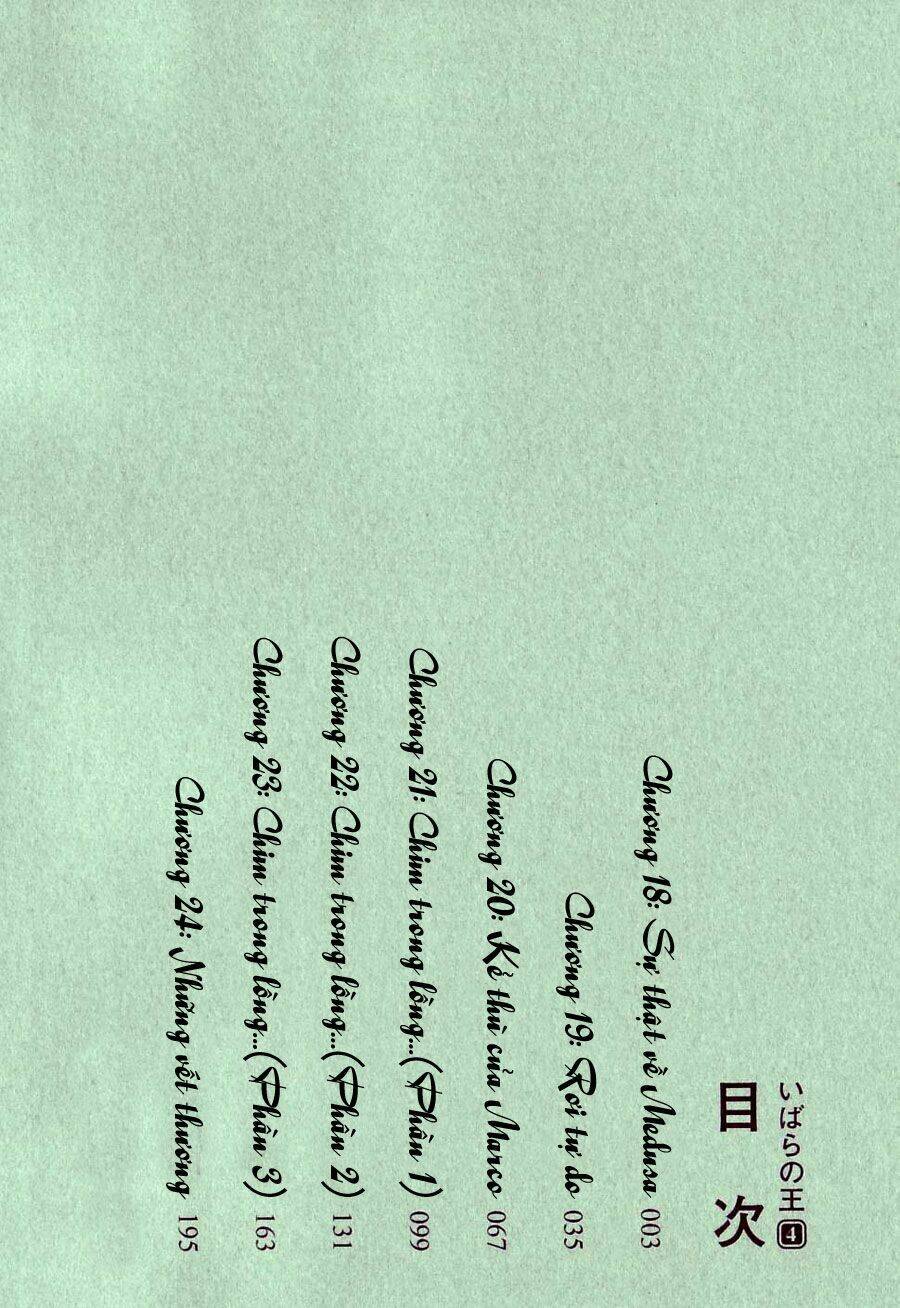 いばらの王 4
目次
Chương 18: Sự thật về Medusa 003
Chương 19: Rơi tự do 035
Chương 20: Kẻ thù của Marco 067
Chương 21: Chim trong lồng...(Phần 1) 099
Chương 22: Chim trong lồng...(Phần 2) 131
Chương 23: Chim trong lồng...(Phần 3) 163
Chương 24: Những vết thương 195